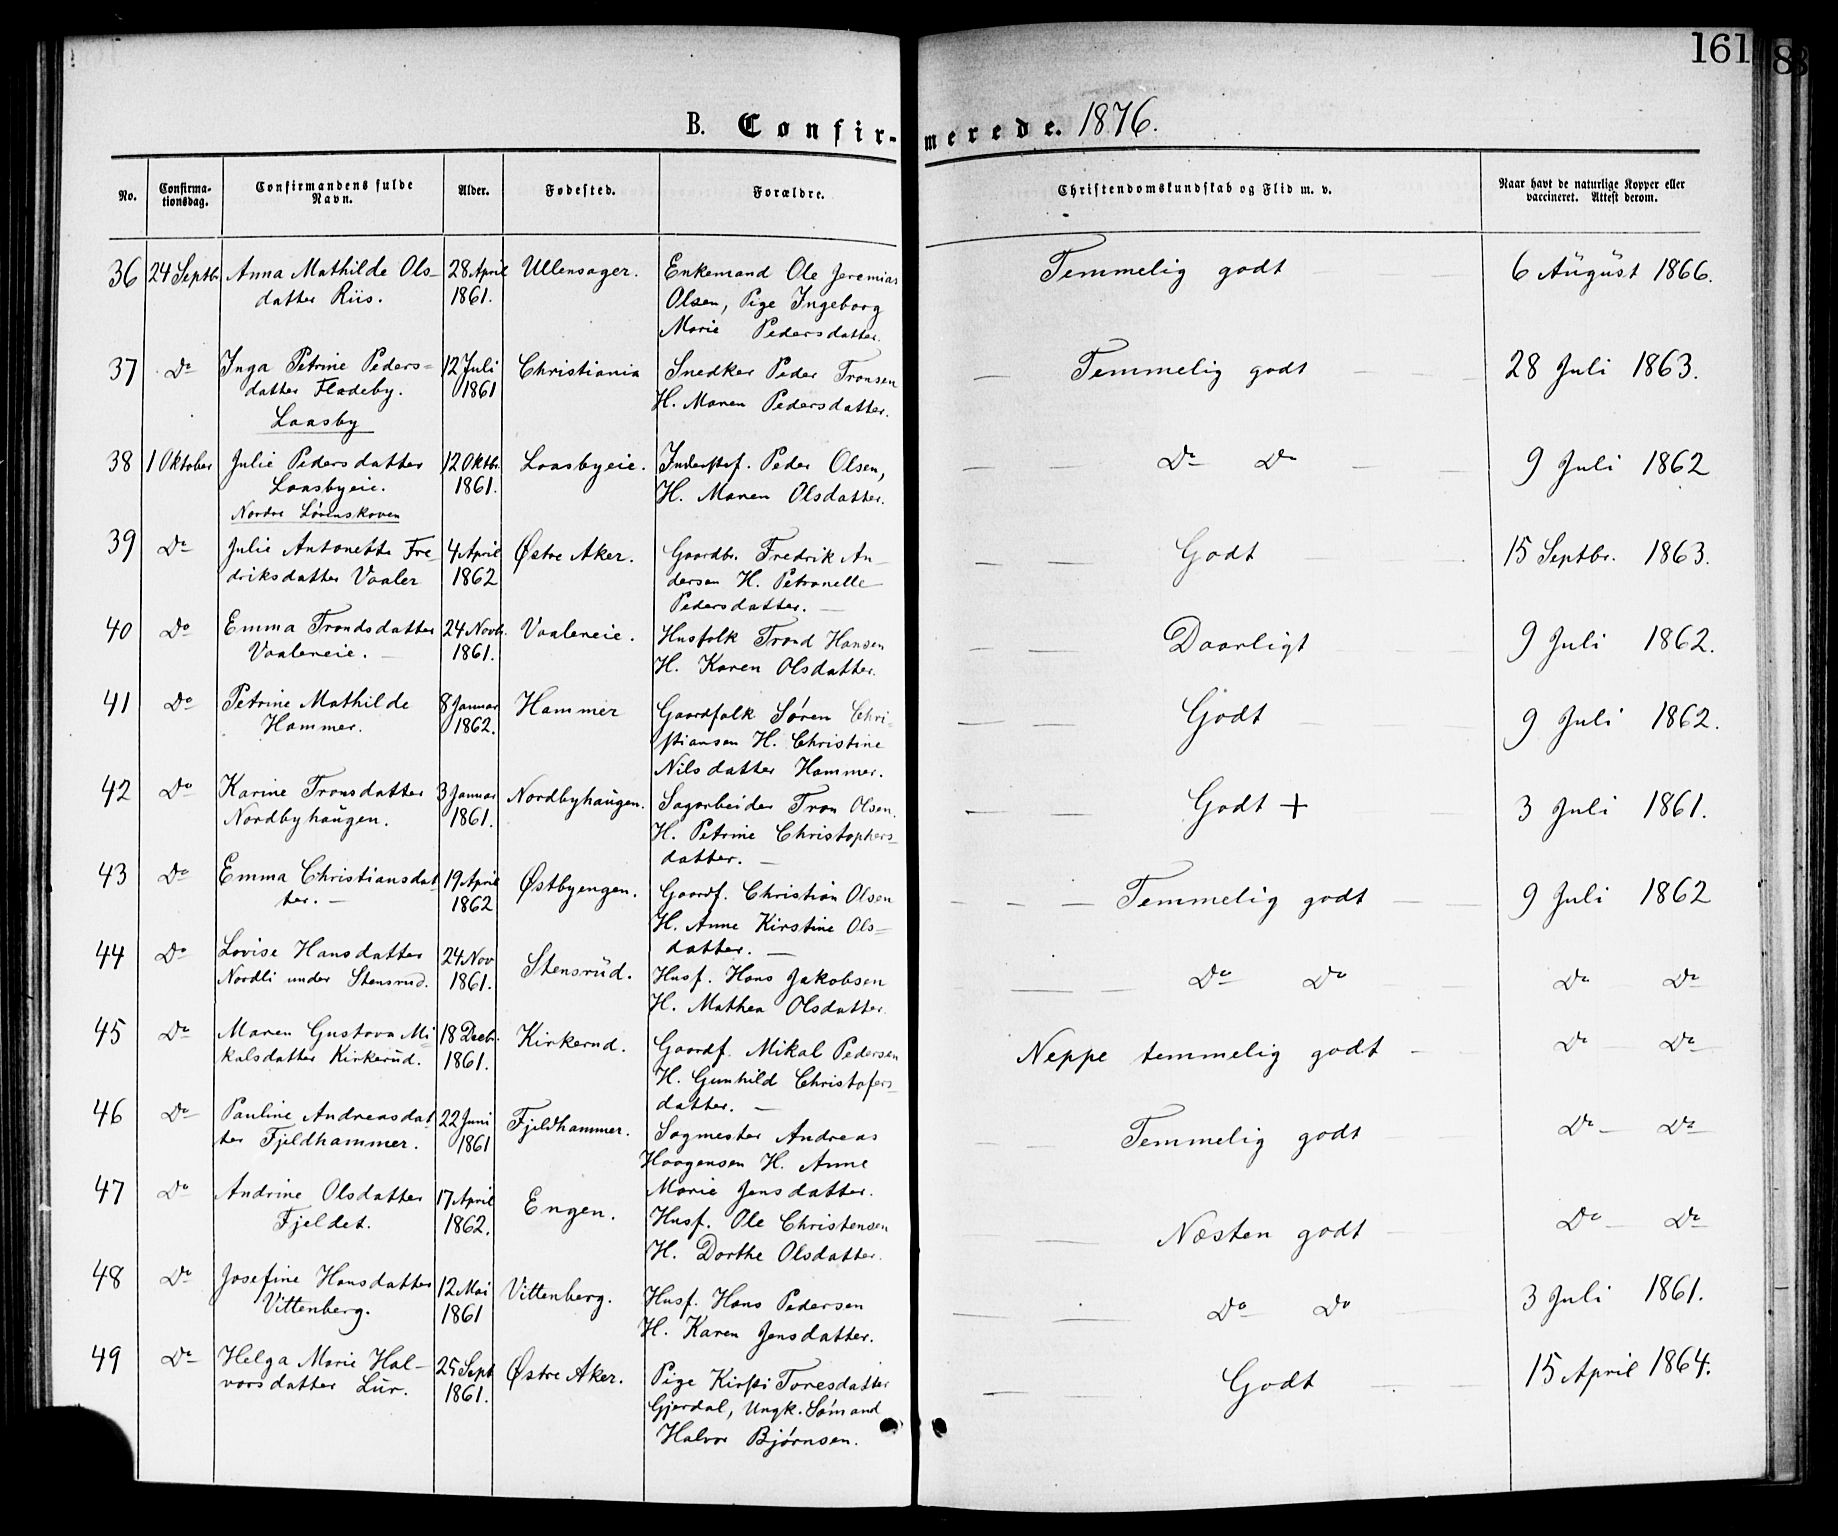 161
8
B. Confir-merede. 1876.
No.
Confirma-
tionsdag.
Confirmandens fulde
Navn.
Alder.
Fødested.
Forældre.
Christendomskundskab og Flid m. v.
Naar havt de naturlige Kopper eller
vaccineret. Attest derom.
36 24 Septbr. Anna Mathilde Ols- 28 April Ullensager. Enkemand Ole Jeremias Temmelig godt 6 August 1866.
datter Riis. 1861. Olsen, Pige Ingeborg
Marie Pedersdatter.
37 Do Inga Petrine Peders= 12 Juli Christiania Snedker Peder Tronsen — Temmelig godt — — 28 Juli 1863.
datter Fladeby. 1861 H. Maren Pedersdatter.
Laasby
38 1 Oktober Julie Pedersdatter 12 Oktbr. Laasbyeie. Inderstf. Peder Olsen, — — Do Do — — 9 Juli 1862
Laasbyeie. 1861. H. Maren Olsdatter.
Nordre Lørenskoven
39 Do Julie Antonette Fre- 4 April Østre Aker. Gaardbr. Fredrik An- — — Godt — — 15 Septbr. 1863.
driksdatter Vaaler 1862 dersen H. Petronelle
Pedersdatter. —
40 Do Emma Trondsdatter 24 Novbr. Vaalereie. Husfolk Trond Hansen — — Daarligt — — 9 Juli 1862.
Vaalereie. — 1861. H. Karen Olsdatter.
41 Do Petrine Mathilde 8 Januar Hammer Gaardfolk Søren Chri- — — Godt — 9 Juli 1862.
Hammer. 1862. stiansen H. Christine
Nilsdatter Hammer.
42 Do Karine Tronsdatter 3 Januar Nordbyhaugen. Sagarbeider Tron Olsen. — — Godt + — 3 Juli 1861.
Nordbyhaugen. 1861. H. Petrine Christophers-
datter. —
43 Do Emma Christiansdat 19 April Østbyengen. Gaardf. Christian Olsen — — — Temmelig godt — — 9 Juli 1862
ter. — 1862 H. Anne Kirstine Ols-
datter. —
44 Do Lovise Hansdatter 24 Nov Stensrud. Husf. Hans Jakobsen — — Do Do — Do Do
Nordli under Stensrud. 1861. H. Mathea Olsdatter.
45 Do Maren Gustava Mi- 18 Decbr. Kirkerud. Gaardf. Mikal Pedersen Neppe temmelig godt — — Do — Do
kalsdatter Kirkerud. 1861. H. Gunhild Christofers-
datter. —
46 Do Pauline Andreasdat 22 Juni Fjeldhammer. Sagmester Andreas — — Temmelig godt — Do — Do
ter Fjeldhammer. 1861 Haagensen H. Anne
Marie Jensdatter.
47 Do Andrine Olsdatter 17 April Engen. Husf. Ole Christensen — — Næsten godt — Do — Do
Fjeldet. 1862. H. Dorthe Olsdatter.
48 Do Josefine Hansdatter 12 Mai Vittenberg. Husf. Hans Pedersen — — Do Do — 3 Juli 1861.
Vittenberg. 1861 H. Karen Jensdatter.
49 Do Helga Marie Hal- 25 Sept Østre Aker. Pige Kirsti Toresdatter — — Godt — — 15 April 1864.
vorsdatter Lur. 1861. Gjerdal, Ungk. Sømand
Halvor Bjørnsen.